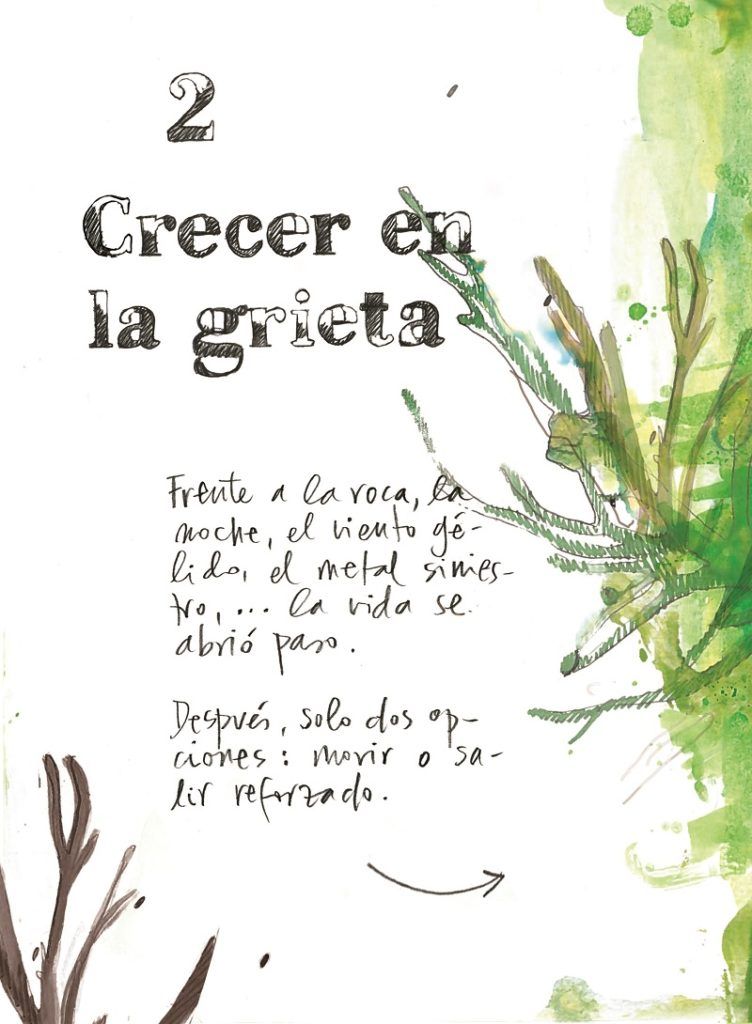 2
Crecer en
la grieta
Frente a la roca, la
noche, el viento gé-
lido, el metal sinies-
tro, ... la vida se
abrió paso.
Después, solo dos op-
ciones: morir o sa-
lir reforzado.